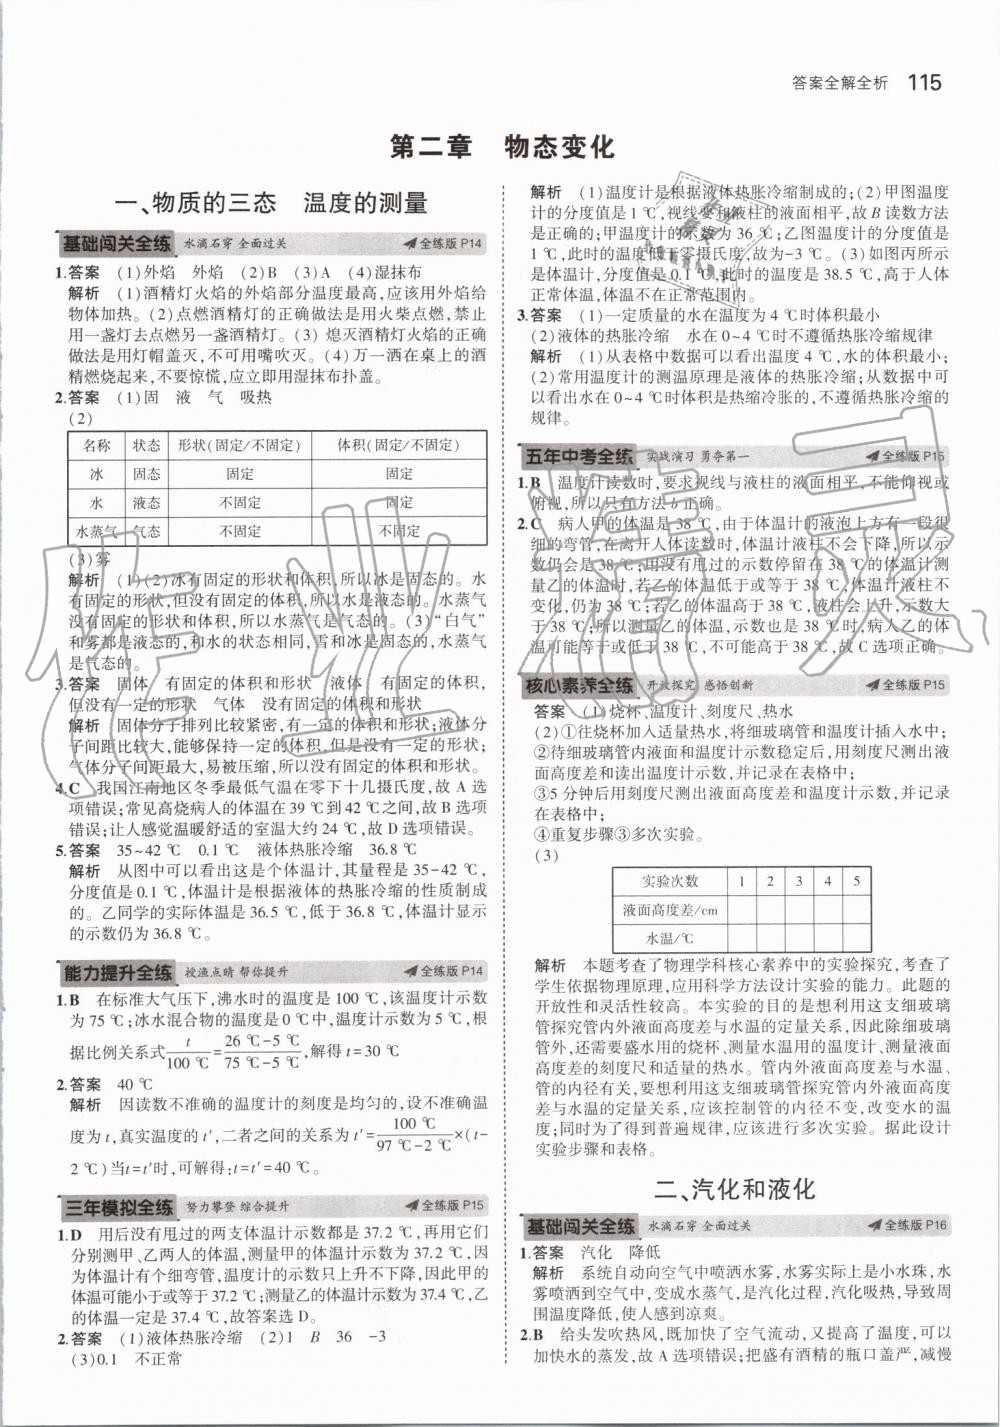 答案全解全析 115
第二章 物态变化
一、物质的三态 温度的测量
基础闯关全练 水滴石穿 全面过关 全练版 P14
1.答案 (1)外焰 外焰 (2)B (3)A (4)湿抹布
解析 (1)酒精灯火焰的外焰部分温度最高,应该用外焰给
物体加热。(2)点燃酒精灯的正确做法是用火柴点燃,禁止
用一盏灯去点燃另一盏酒精灯。(3) 熄灭酒精灯火焰的正确
做法是用灯帽盖灭,不可用嘴吹灭。(4)万一洒在桌上的酒
精燃烧起来,不要惊慌,应立即用湿抹布扑盖。
2.答案 (1)固 液 气 吸热
(2)
名称 状态 形状(固定/不固定) 体积(固定/不固定)
冰 固态 固定 固定
水 液态 不固定 固定
水蒸气 气态 不固定 不固定
(3)雾
解析 (1)(2)冰有固定的形状和体积,所以冰是固态的。水
有固定的形状,但没有固定的体积,所以水是液态的。水蒸气
没有固定的形状和体积,所以水蒸气是气态的。(3)“白气”
和雾都是液态的,和水的状态相同,雪和冰是固态的,水蒸气
是气态的。
3.答案 固体 有固定的体积和形状 液体 有固定的体积,
但没有一定的形状 气体 没有固定的体积和形状
解析 固体分子排列比较紧密,有一定的体积和形状;液体分
子间距比较大,能够保持一定的体积,但是没有一定的形状;
气体分子间距最大,易被压缩,所以没有固定的体积和形状。
4.C 我国江南地区冬季最低气温在零下十几摄氏度,故 A 选
项错误;常见高烧病人的体温在 39 ℃到 42 ℃之间,故 B 选项
错误;让人感觉温暖舒适的室温大约 24 ℃,故 D 选项错误。
5.答案 35~42 ℃ 0.1 ℃ 液体热胀冷缩 36.8 ℃
解析 从图中可以看出这是个体温计,其量程是 35~42 ℃,
分度值是 0.1 ℃,体温计是根据液体的热胀冷缩的性质制成
的。乙同学的实际体温是 36.5 ℃,低于 36.8 ℃,体温计显示
的示数仍为 36.8 ℃。
能力提升全练 授渔点睛 帮你提升 全练版 P14
1.B 在标准大气压下,沸水时的温度是 100 ℃,该温度计示数
为 75 ℃;冰水混合物的温度是 0 ℃中,温度计示数为 5 ℃,根
据比例关系式t/100 ℃=(26 ℃-5 ℃)/(75 ℃-5 ℃),解得 t=30 ℃
2.答案 40 ℃
解析 因读数不准确的温度计的刻度是均匀的,设不准确温
度为 t,真实温度的 t′,二者之间的关系为 t′=100 ℃/(97 ℃-2 ℃)×(t-
2 ℃)当 t=t′时,可解得:t=t′=40 ℃。
三年模拟全练 努力攀登 综合提升 全练版 P15
1.D 用后没有甩过的两支体温计示数都是 37.2 ℃,再用它们
分别测甲、乙两人的体温,测量甲的体温计示数为 37.2 ℃,因
为体温计有个细弯管,温度计的示数只上升不下降,因此甲的
体温可能小于或等于 37.2 ℃;测量乙的体温计示数为 37.4 ℃,乙
的体温一定是 37.4 ℃,故答案选 D。
2.答案 (1)液体热胀冷缩 (2)1 B 36 -3
(3)0.1 不正常
解析 (1)温度计是根据液体热胀冷缩制成的;(2)甲图温度
计的分度值是 1 ℃,视线要和液柱的液面相平,故 B 读数方法
是正确的;甲温度计的示数为 36 ℃;乙图温度计的分度值是
1 ℃,此时的温度低于零摄氏度,故为-3 ℃。(3)如图丙所示
是体温计,分度值是 0.1 ℃,此时的温度是 38.5 ℃,高于人体
正常体温,体温不在正常范围内。
3.答案 (1)一定质量的水在温度为 4 ℃时体积最小
(2)液体的热胀冷缩 水在 0~4 ℃时不遵循热胀冷缩规律
解析 (1)从表格中数据可以看出温度 4 ℃,水的体积最小;
(2)常用温度计的测温原理是液体的热胀冷缩;从数据中可
以看出水在 0~4 ℃时体积是热缩冷胀的,不遵循热胀冷缩的
规律。
五年中考全练 实战演习 勇夺第一 全练版 P15
1.B 温度计读数时,要求视线与液柱的液面相平,不能仰视或
俯视,所以只有方法 b 正确。
2.C 病人甲的体温是 38 ℃,由于体温计的液泡上方有一段很
细的弯管,在离开人体读数时,体温计液柱不会下降,所以示
数仍会是 38 ℃;用没有甩过的示数停留在 38 ℃的体温计测
量乙的体温时,若乙的体温低于或等于 38 ℃,体温计液柱不
变化,仍为 38 ℃;若乙的体温高于 38 ℃,液柱会上升,示数大
于 38 ℃;所以测量乙的体温,示数也是 38 ℃时,病人乙的体
温可能等于或低于 38 ℃,不可能高于 38 ℃,故 C 选项正确。
核心素养全练 开放探究 感悟创新 全练版 P15
答案 (1)烧杯、温度计、刻度尺、热水
(2)①往烧杯加入适量热水,将细玻璃管和温度计插入水中;
②待细玻璃管内液面和温度计示数稳定后,用刻度尺测出液
面高度差和读出温度计示数,并记录在表格中;
③5 分钟后用刻度尺测出液面高度差和温度计示数,并记录
在表格中;
④重复步骤③多次实验。
(3)
实验次数 1 2 3 4 5
液面高度差/cm
水温/℃
解析 本题考查了物理学科核心素养中的实验探究,考查了
学生依据物理原理,应用科学方法设计实验的能力。此题的
开放性和灵活性较高。本实验的目的是想利用这支细玻璃
管探究管内外液面高度差与水温的定量关系,因此除细玻璃
管外,还需要盛水用的烧杯、测量水温用的温度计、测量液面
高度差的刻度尺和适量的热水。管内外液面高度差与水温、
管的内径有关,要想利用这支细玻璃管探究管内外液面高度
差与水温的定量关系,应该控制管的内径不变,改变水的温
度;同时为了得到普遍规律,应该进行多次实验。据此设计
实验步骤和表格。
二、汽化和液化
基础闯关全练 水滴石穿 全面过关 全练版 P16
1.答案 汽化 降低
解析 系统自动向空气中喷洒水雾,水雾实际上是小水珠,水
雾喷洒到空气中,变成水蒸气,是汽化过程,汽化吸热,导致周
围温度降低,使人感到凉爽。
2.B 给头发吹热风,既加快了空气流动,又提高了温度,可以
加快水的蒸发,故 A 选项错误;把盛有酒精的瓶口盖严,减慢
作业精灵